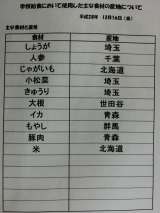 学校給食において使用した主な食材の産地について
平成28年 12月16日（金）
主な食材と産地
食材 産地
しょうが 埼玉
人参 千葉
じゃがいも 北海道
小松菜 埼玉
きゅうり 埼玉
大根 世田谷
イカ 青森
もやし 群馬
豚肉 青森
米 北海道